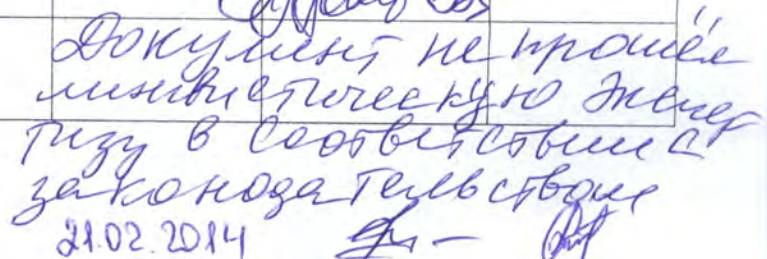 Документ не прошёл
лингвистическую экспер
тизу в соответствии с
законодательством
21.02.2014